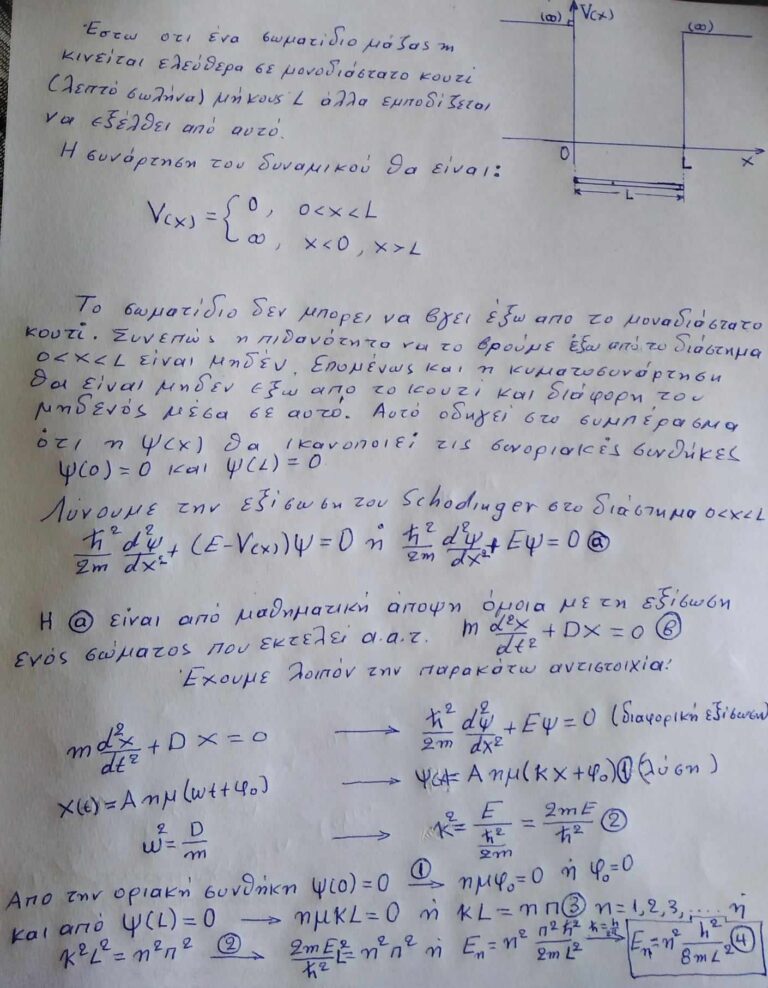 Έστω οτι ένα σωματίδιο μάζας m
κινείται ελεύθερα σε μονοδιάστατο κουτί
(λεπτό σωλήνα) μήκους L άλλα εμποδίζεται
να εξέλθει από αυτό.
Η συνάρτηση του δυναμικού θα είναι:
(∞) V(x) (∞)
0 L x
L
V(x) = { 0, 0<x<L
∞, x<0, x>L
Το σωματίδιο δεν μπορει να βγει έξω απο το μοναδιάστατο
κουτί. Συνεπώς η πιθανότητα να το βρούμε έξω από το διάστημα
0<x<L είναι μηδέν. Επομένως και η κυματοσυνάρτηση
θα είναι μηδέν έξω απο το κουτί και διάφορη του
μηδενός μέσα σε αυτό. Αυτό οδηγεί στο συμπέρασμα
ότι η ψ(x) θα ικανοποιεί τις συνοριακές συνθήκες
ψ(0)=0 και ψ(L)=0
Λύνουμε την εξίσωση του Schodinger στο διάστημα 0<x<L
ħ²/2m d²ψ/dx² + (E-V(x))ψ=0 ή ħ²/2m d²ψ/dx² + Eψ=0 ⓐ
Η ⓐ είναι από μαθηματική άποψη όμοια με τη εξίσωση
ενός σώματος που εκτελεί α.α.τ. m d²x/dt² + Dx = 0 ⓑ
Έχουμε λοιπόν την παρακάτω αντιστοιχία:
m d²x/dt² + D x = 0 → ħ²/2m d²ψ/dx² + Eψ=0 (διαφορική εξίσωση)
x(t)=A ημ(ωt+φ₀) → ψ(x)= A ημ(kx+φ₀) ① (λύση)
ω²= D/m → k²= E/(ħ²/2m) = 2mE/ħ² ②
Απο την οριακή συνθήκη ψ(0)=0 ①→ ημφ₀=0 ή φ₀=0
και από ψ(L)=0 → ημkL=0 ή kL=nπ ③ n=1,2,3,.... ή
k²L²=n²π² ②→ 2mE/ħ² L²=n²π² ή Eₙ=n² π²ħ²/2mL² ħ=h/2π→ Eₙ=n² h²/8mL² ④